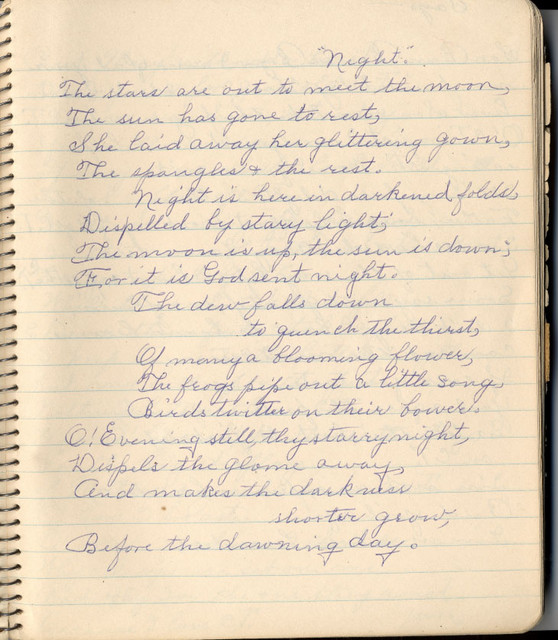 "Night".
The stars are out to meet the moon,
The sun has gone to rest;
She laid away her glittering gown,
The spangles & the rest.
Night is here in darkened folds,
Dispelled by stary light;
The moon is up, the sun is down;
For it is God sent night.
The dew falls down
to quench the thirst,
Of many a blooming flower,
The frogs pipe out a little song,
Birds twitter on their bower.
O! Evening still, thy starry night,
Dispels the glome away,
And makes the darkness
shorter grow,
Before the dawning day.